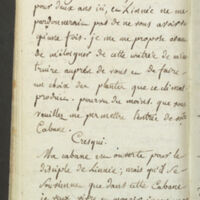 pour deux ans ici, en Linnée ne me
pardonneraien pas de ne vous avoir vu
qu'une fois. je me me propose avan
de m'éloigner de cette contrée de m'in
truire auprès de vous en de faire
un choix des plantes que ce climat
produit. pourvu du moins, que vous
veuillez me permettre l'entrée de votre
Cabane.
Cresqui.
Ma cabane en ouverte pour le
disciple de Linnée; mais qu'il se
souvienne que dans cette Cabane
je veux vivre